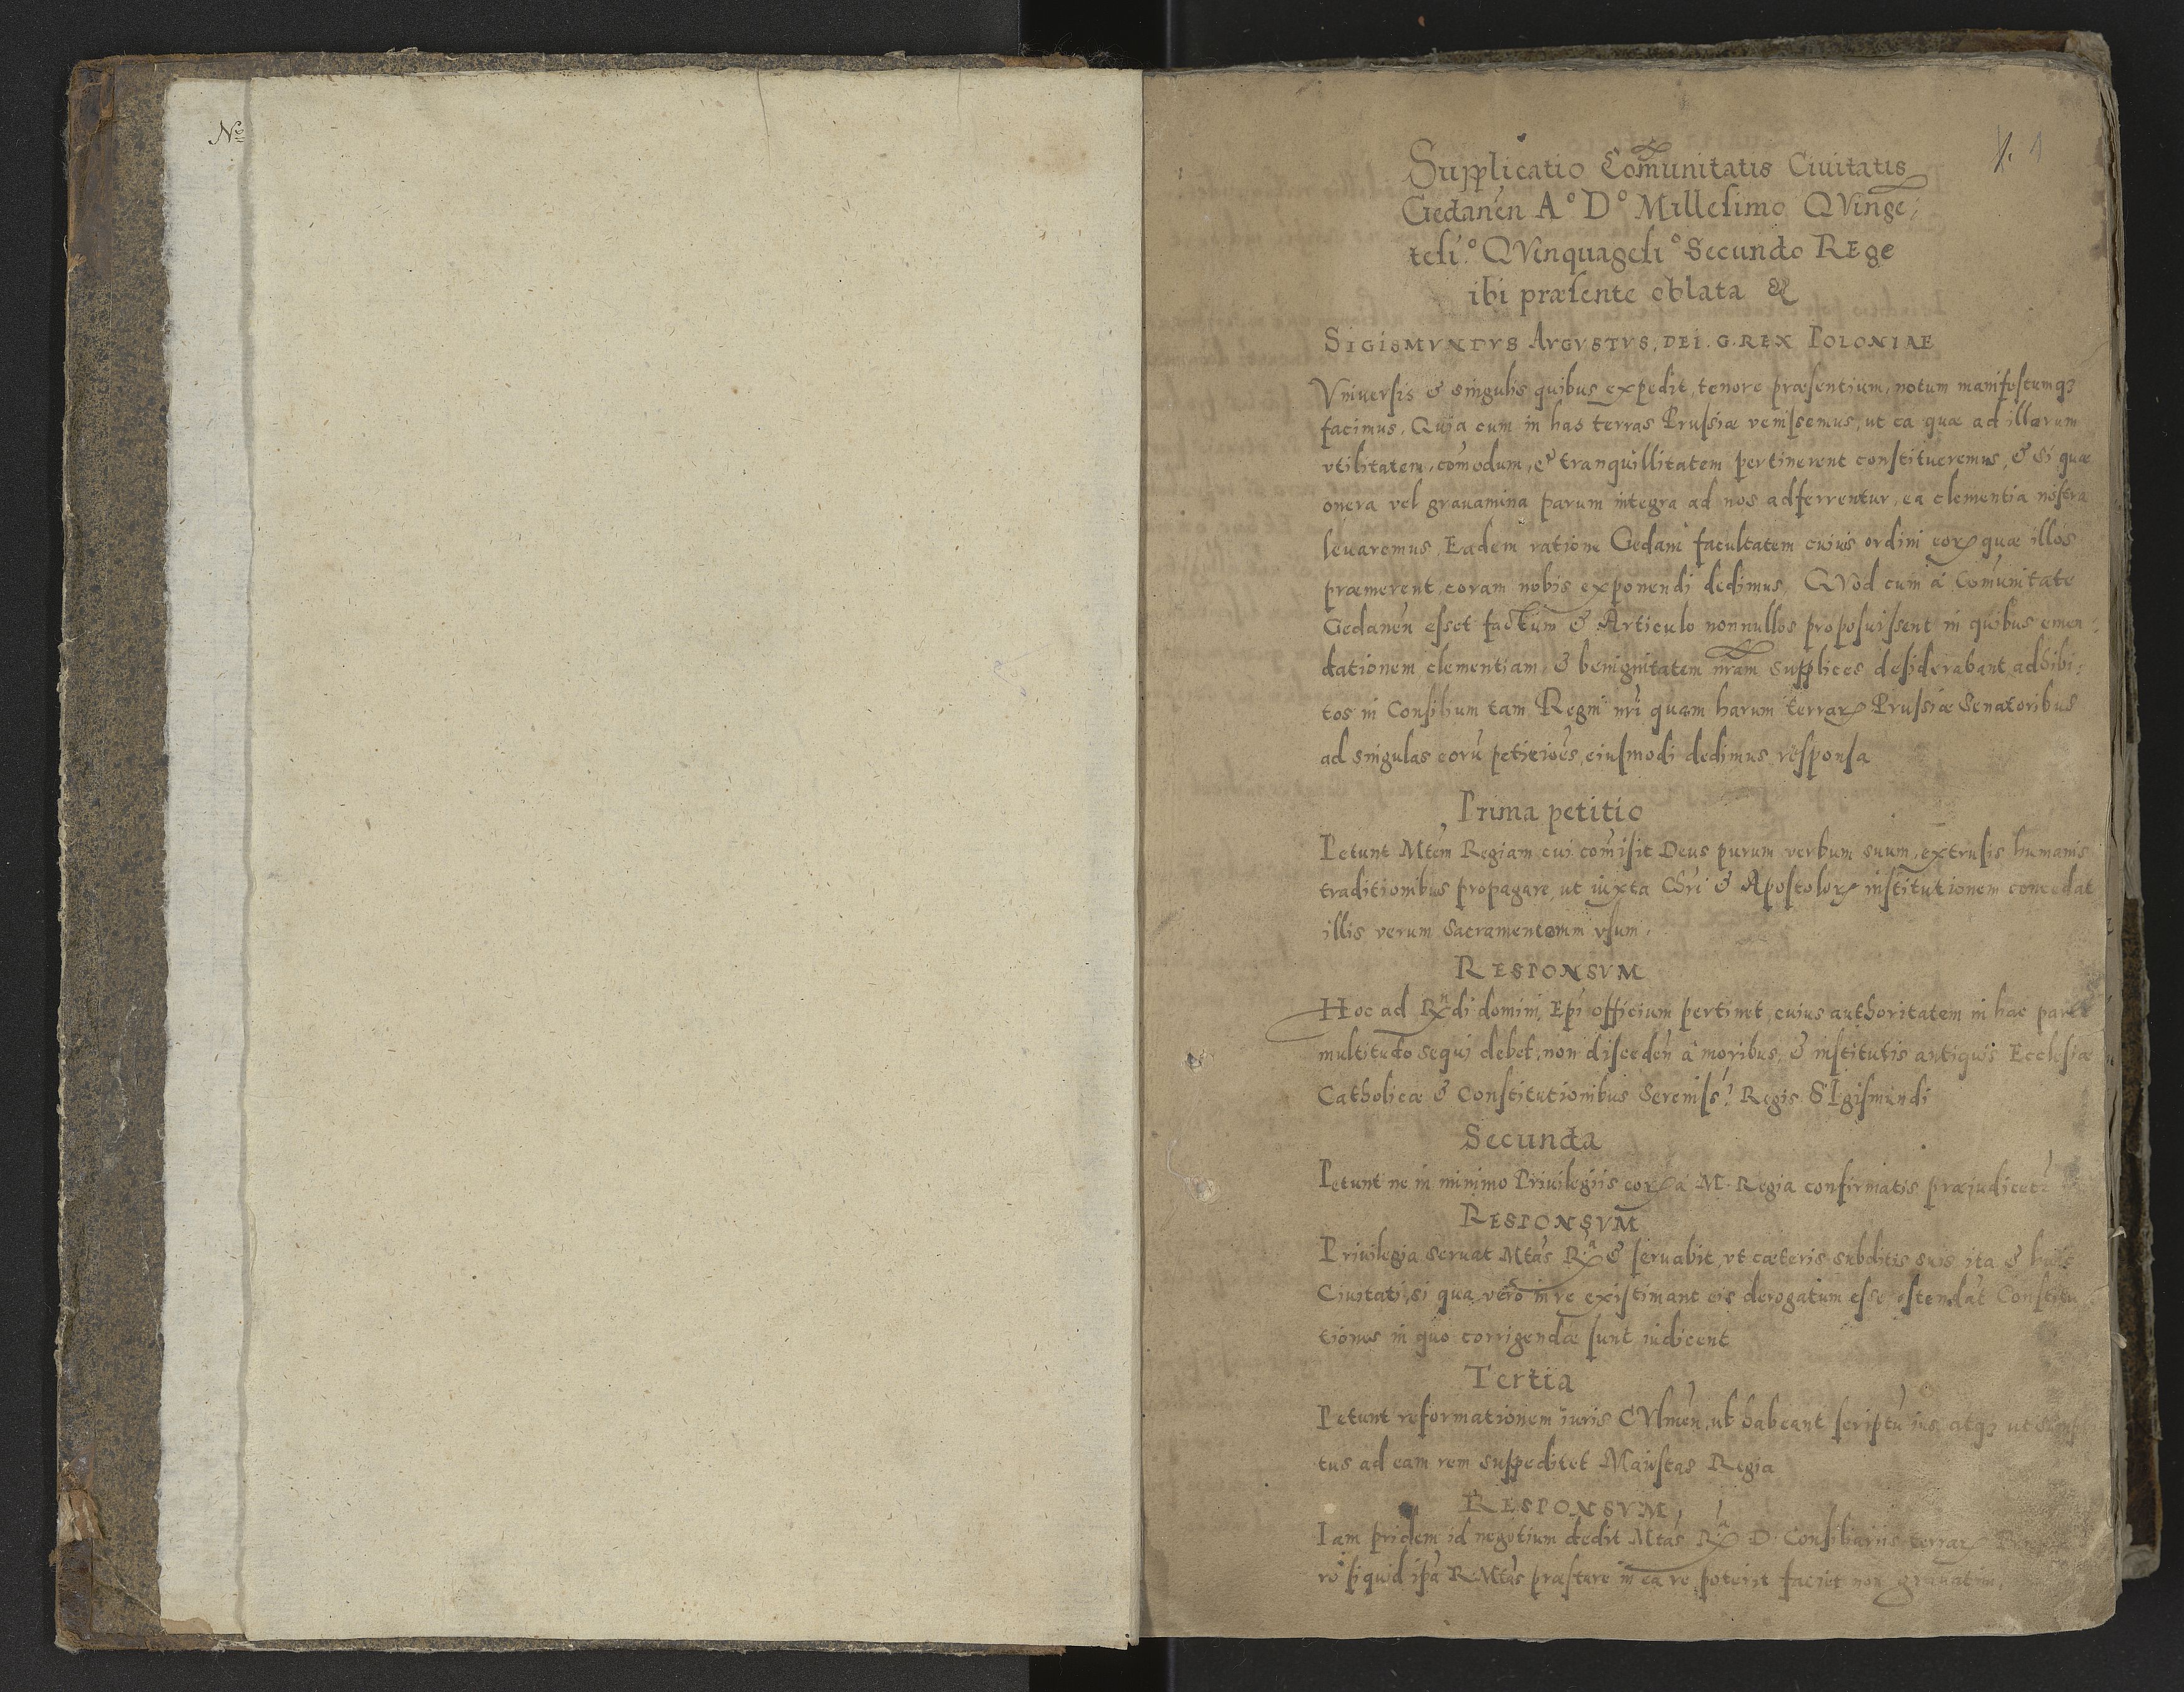 No
1. 1
Supplicatio Com̃unitatis Ciuitatis
Gedanen̄ Aº Dº Millesimo QVinge:
tesi.º QVinquagesi º Secundo REge
ibi præsente oblata &
SIGISMVNDVS AVGVSTVS, DEI. G. REX POLONIAE
Vniuersis & singulis quibus expedit, tenore præsentium, notum manifestumqꝫ
facimus. Quia cum in has terras Prussiæ venissemus, ut ea quæ ad illarum
vtilitatem, com̃odum, et tranquillitatem pertinerent constitueremus, & si quæ
onera vel grauamina parum integra ad nos adferrentur, ea clementia nostra
leuaremus, Eadem ratione Gedani facultatem cuius ordini eoꝝ quæ illos
præmerent, coram nobis exponendi dedimus. QVod cum a Com̃unitate
Gedanen̄ esset factum & Articulo nonnullos proposuissent in quibus emen:
dationem clementiam, & benignitatem nr̃am supplices desiderabant, adhibi:
tos in Consilium tam Regni nr̃i quam harum terraꝝ Prussiæ Senatoribus
ad singulas eorũ petitiões, eiusmodi dedimus responsa
Prima petitio
Petunt Mtem̃ Regiam cui com̃isit Deus purum verbum suum, extrusis humanis
traditionibus propagare, ut iuxta Chr̃i & Apostoloꝝ institutionem concedat
illis verum Sacramentorum vsum.
RESPONSVM
Hoc ad Rndi domini, Epĩ officium pertinet, cuius authoritatem in hac parte
multitudo sequi debet, non disceden̄ a moribus, & institutis antiquis Ecclesiæ
Catholicæ & Constitutionibus Sereniss: Regis SIgismundi
Secunda
Petunt ne in minimo Priuilegiis eoꝝ a M. Regia confirmatis præjudicet:
RESPONSVM
Priuilegia seruat Mtas̃ R.a & seruabit, vt cæteris subditis suis ita & huic
Ciuitati, si qua vero in re existimant eis derogatum esse ostendãt Constitu
tiones in quo corrigendæ sunt indicent
Tertia
Petunt reformationem iuris CVlmen̄, ut habeant scriptũ ius atqꝫ ut
tus ad eam rem suppeditet Maiestas Regia
RESPONSVM
Iam pridem id negotium dedit Mtas̃ R.a D. Consiliariis terraꝝ
ro si quid ipã R. Mtas̃ præstare in ea re poterit faciet non grauatim.